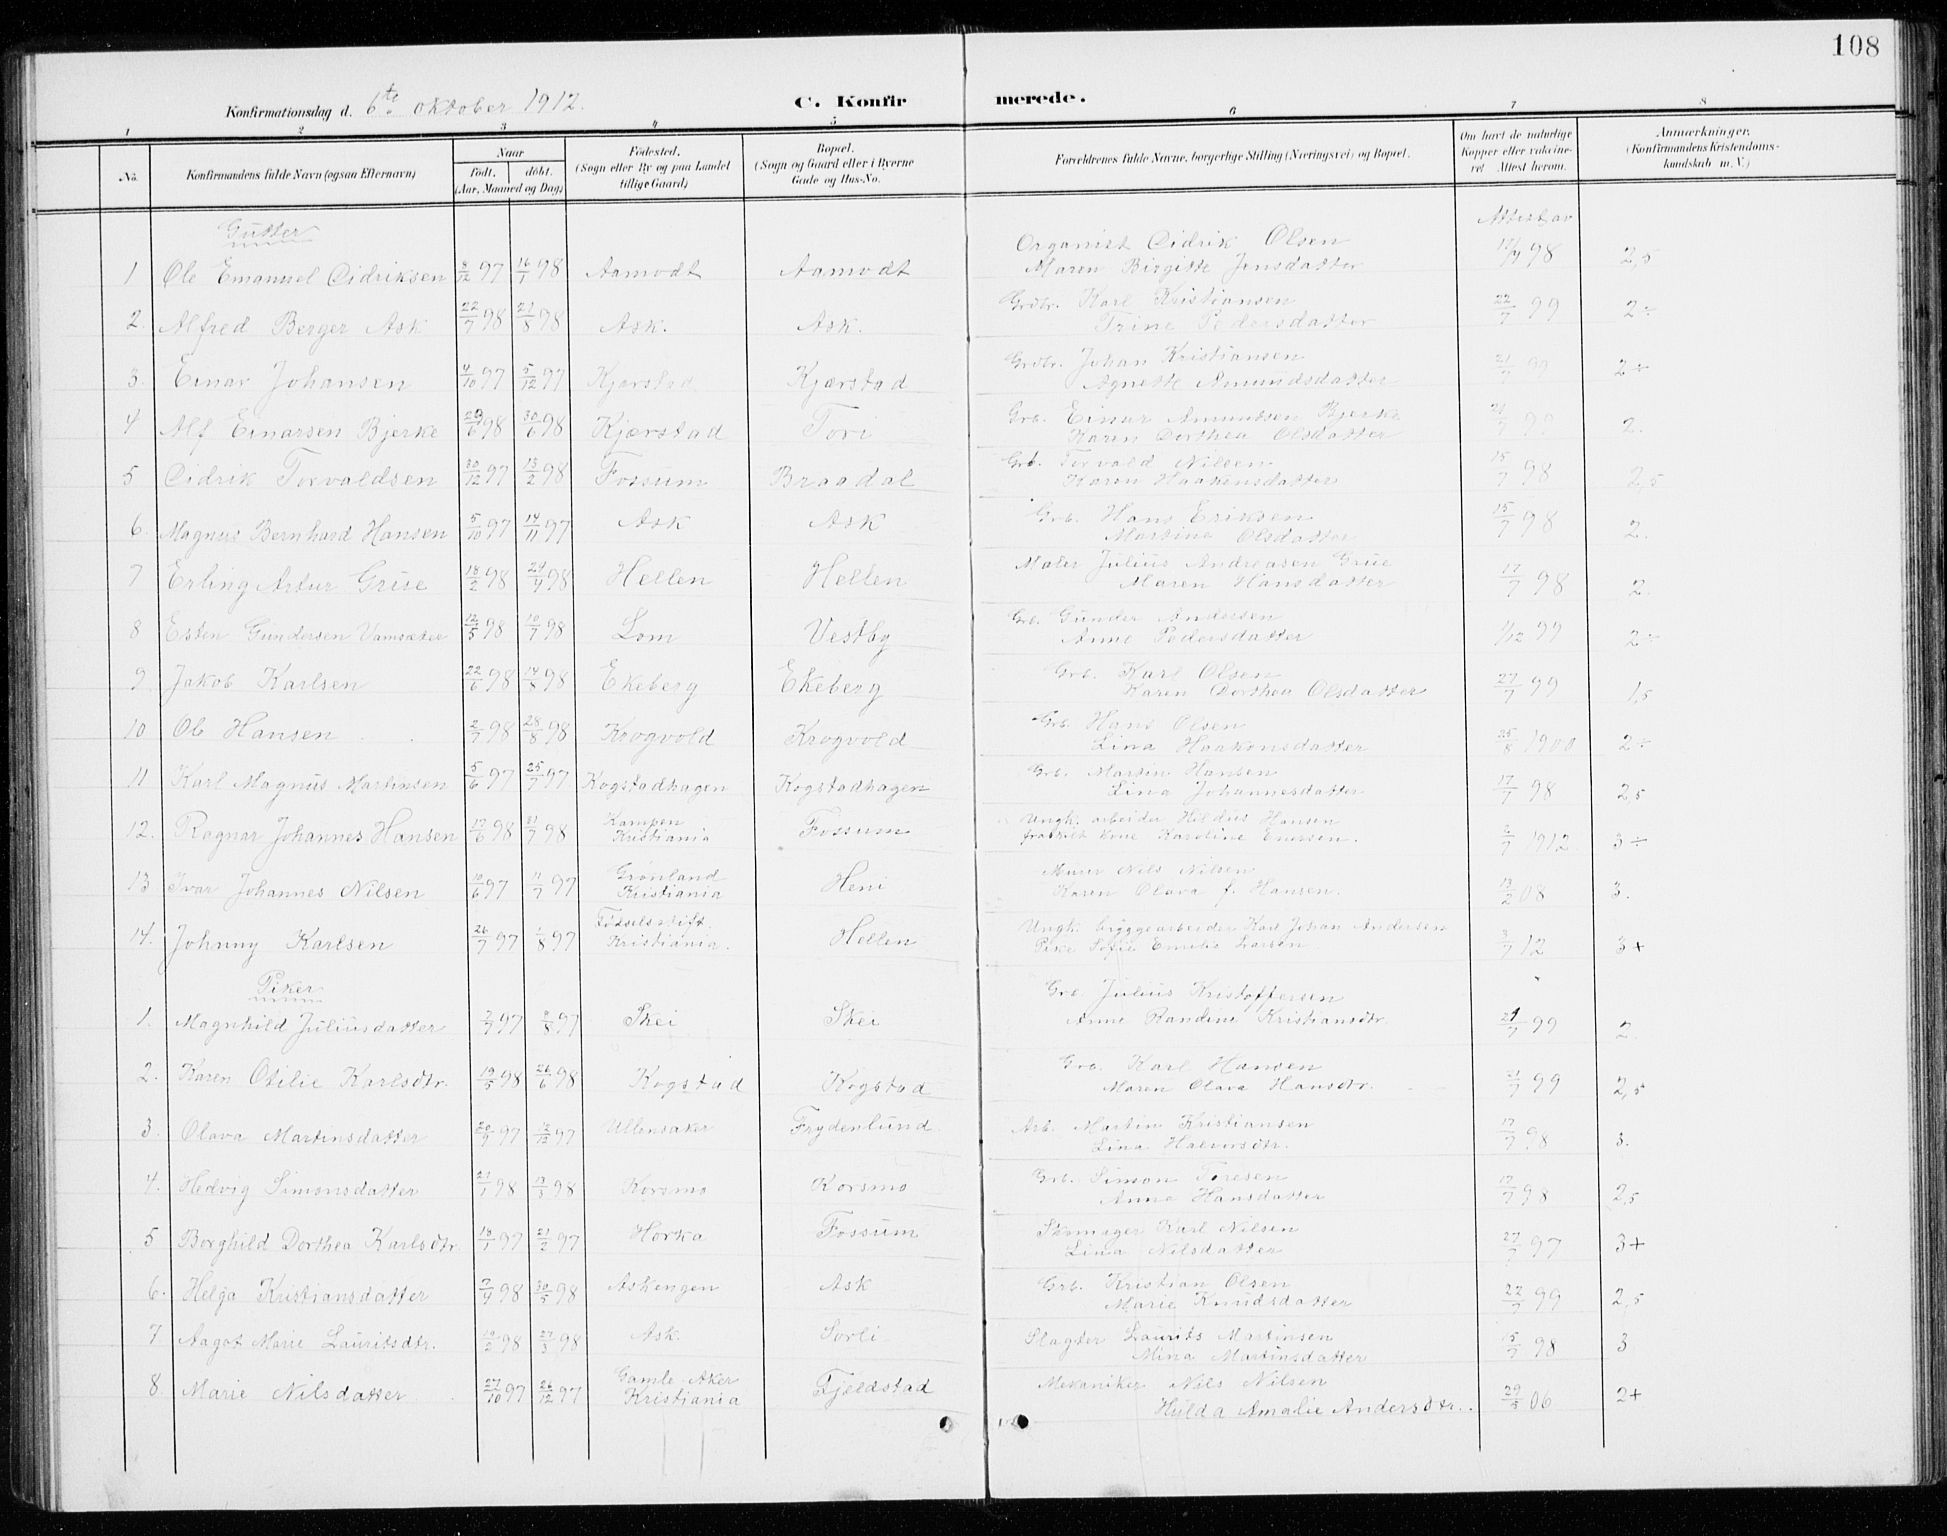 108
Konfirmationsdag d. 6te oktober 1912.
C. Konfirmerede.
1 2 3 4 5 6 7 8
No. Konfirmandens fulde Navn (ogsaa Efternavn) Naar født. døbt. (Aar, Maaned og Dag) Fødested. (Sogn eller By og paa Landet tillige Gaard) Bopæl. (Sogn og Gaard eller i Byerne Gade og Hus-No. Forældrenes fulde Navne, borgerlige Stilling (Næringsvei) og Bopæl. Om havt de naturlige Kopper eller vaksineret Attest herom. Anmærkninger. (Konfirmandens Kristendomskundskab m. V.)
Gutter
Attest av
1 Ole Emanuel Cidriksen 8/12 97 16/1 98 Aamodt Aamodt Organist Cidrik Olsen 17/7 98 2,5
Maren Birgitte Jensdatter
2. Alfred Berger Ask 22/7 98 21/8 98 Ask. Ask. Grdbr. Karl Kristiansen 22/7 99 2÷
Trine Pedersdatter
3. Einar Johansen 4/10 97 5/12 97 Kjærstad Kjærstad Grdbr. Johan Kristiansen 21/7 99 2÷
Agnette Amundsdatter
4 Alf Einarsen Bjerke 29/6 98 30/6 98 Kjærstad Tori Grb. Einar Amundsen Bjerke 2.
Karen Dorthea Olsdatter
5 Cidrik Torvaldsen 30/12 97 13/2 98 Fossum Braadal Grb. Torvald Nilsen 15/7 98 2,5
Karen Haakensdatter
6. Magnus Bernhard Hansen 5/10 97 14/11 97 Ask Ask Grb. Hans Eriksen 15/7 98 2.
Martine Olsdatter
7 Erling Artur Grüe 18/2 98 24/4 98 Hellen Hellen Maler Julius Andreasen Grüe 17/7 98 2.
Maren Hansdatter
8 Esten Gundersen Vamsæter 12/5 98 10/7 98 Lom Vestby Grb. Gunder Andersen 1/12 99 2÷
Anne Pedersdatter
9 Jakob Karlsen 22/6 98 14/8 98 Ekeberg Ekeberg Grb. Karl Olsen 27/7 99 1,5
Karen Dorthea Olsdatter
10 Ole Hansen 2/7 98 28/8 98 Krogvold Krogvold Grb. Hans Olsen 25/8 1900 2÷
Lina Haakonsdatter
11 Karl Magnus Martinsen 5/6 97 25/7 97 Kogstadhagen Kogstadhagen Grb. Martin Hansen 17/7 98 2,5
Lina Johannesdatter
12. Ragnar Johannes Hansen 17/6 98 31/7 98 Kampen Kristiania Fossum Ungk. arbeider Hildus Hansen 2/7 1912 3÷
fraskilt kone Karoline Enersen.
13 Ivar Johannes Nilsen 10/6 97 11/7 97 Grønland Kristiania Heni Murer Nils Nilsen 13/2 08 3.
Karen Olava f. Hansen.
14. Johnny Karlsen 26/7 97 1/8 97 Fødselsstift. Kristiania. Hellen Ungk. bryggearbeider Karl Johan Andersen 3/7 12 3+
Pike Sofie Emilie Larsen
Piker
1. Magnhild Juliusdatter 7/7 97 8/8 97 Skei Skei Grb. Julius Kristoffersen 21/7 99 2.
Anne Randine Kristiansdtr.
2. Karen Otilie Karlsdtr. 19/5 98 26/6 98 Kogstad Kogstad Grb. Karl Hansen 21/7 99 2,5
Maren Olava Hansdtr.
3. Olava Martinsdatter 20/9 97 12/12 97 Ullensaker Frydenlund Arb. Martin Kristiansen 17/7 98 3.
Lina Halvorsdtr.
4. Hedvig Simonsdatter 21/1 98 13/3 98 Korsmo Korsmo Grb. Simon Toresen 17/7 98 2,5
Anne Hansdatter
5 Borghild Dorthea Karlsdtr. 18/1 97 21/2 97 Horka Fossum Skomager Karl Nilsen 27/7 97 3+
Lina Nilsdatter
6. Helga Kristiansdatter 7/4 98 30/5 98 Askengen Ask Grb. Kristian Olsen 22/7 99 2,5
Marie Knudsdatter
7 Aagot Marie Lauritsdtr. 10/2 98 27/3 98 Ask. Sorli Slagter Laurits Martinsen 15/7 98 3
Mina Martinsdatter
8. Marie Nilsdatter 27/10 97 26/12 97 Gamle Aker Kristiania Fjeldstad Mekaniker Nils Nilsen 29/5 06 2+
Hylda Amalie Andersdtr.